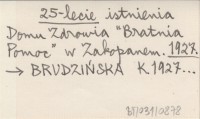 25-lecie istnienia
Domu Zdrowia "Bratnia
Pomoc" w Zakopanem. 1927.
→ BRUDZIŃSKA K. 1927...
BJ/031/0878